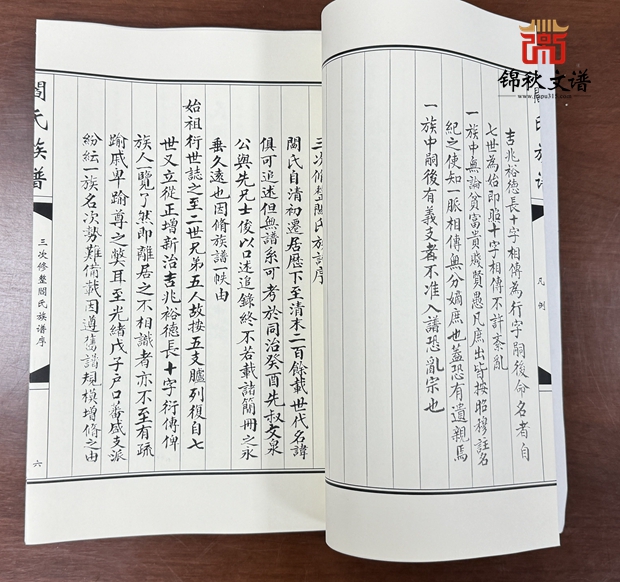 锦秋文谱
凡例
吉兆裕德長十字相傳為行字嗣後命名者自
七世為始即照十字相傳不許紊亂
一族中無論貧富貴賤賢愚凡庶出皆按昭穆註名
紀之使知一脈相傳無分嫡庶也蓋恐有遺親焉
一族中嗣後有義支者不准入譜恐亂宗也
三次修整閻氏族譜序
閻氏自清初遷居歷下至清末二百餘載世代名諱
俱可追述但無譜系可考於同治癸酉先叔文泉
公與先兄士俊以口述追錄終不若載諸簡冊之永
垂久遠也因脩族譜一帙由
始祖衍世誌之至二世兄弟五人故按五支臚列復自七
世又立從正增新治吉兆裕德長十字衍傳俾
族人一覽了然即離居之不相識者亦不至有疏
踰戚卑踰尊之獘耳至光緒戊子戶口蕃盛支派
紛紜一族名次勢難備載因遵舊譜規模增脩之由
閻氏族譜
三次修整閻氏族譜序
六